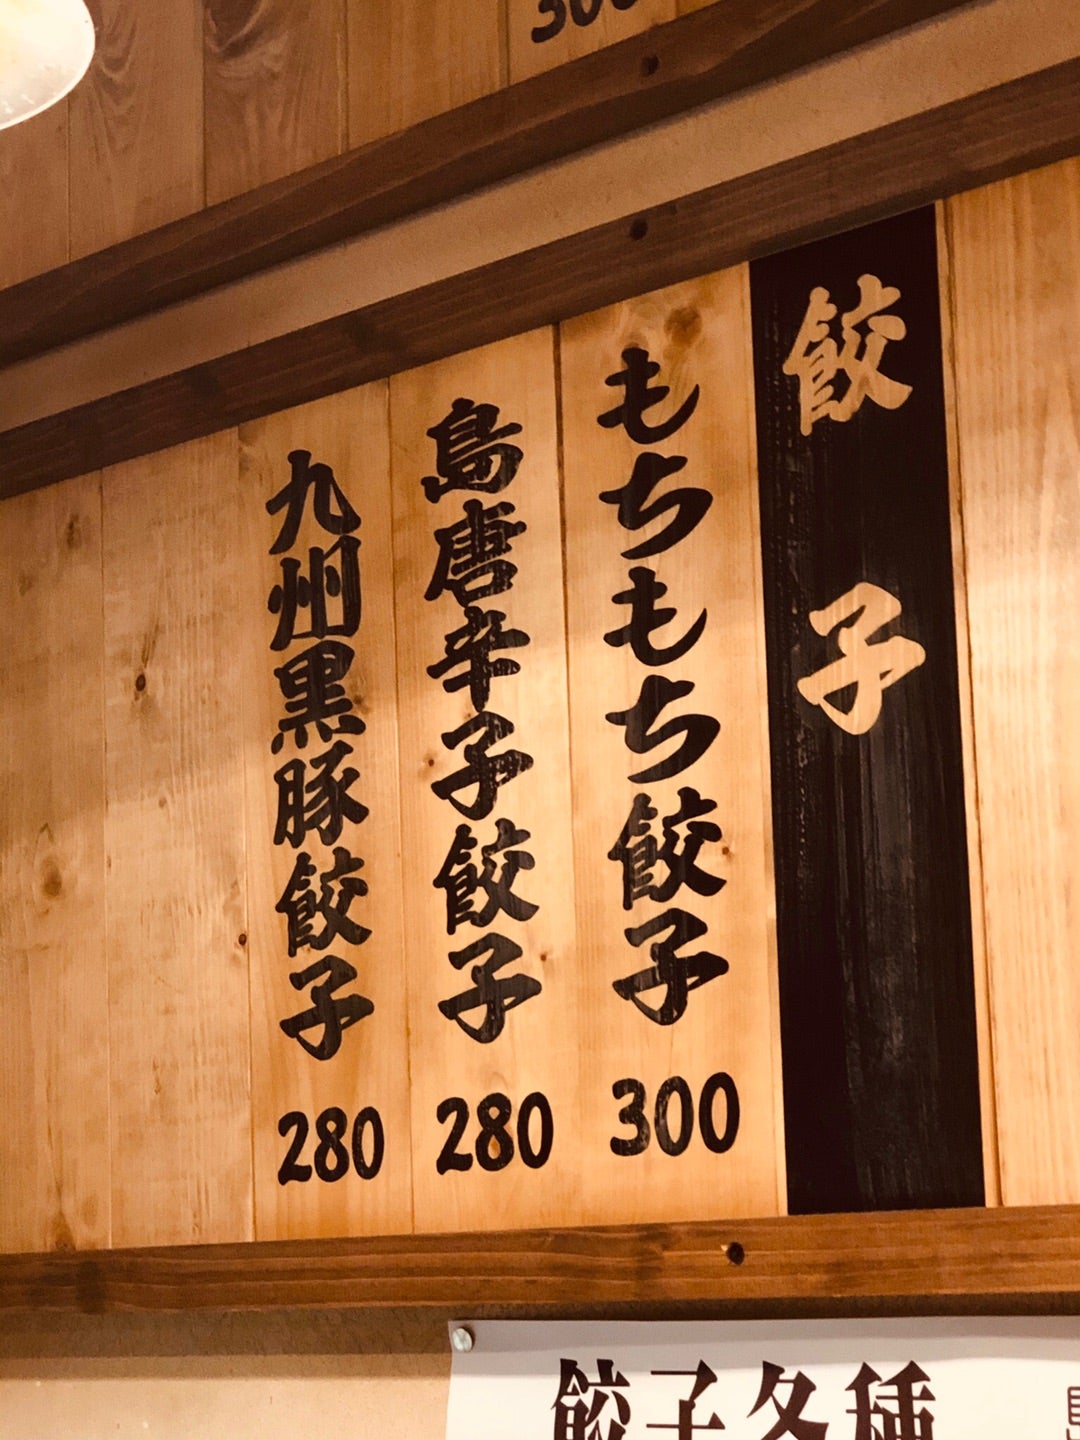 餃子
もちもち餃子 300
島唐辛子餃子 280
九州黒豚餃子 280
餃子各種